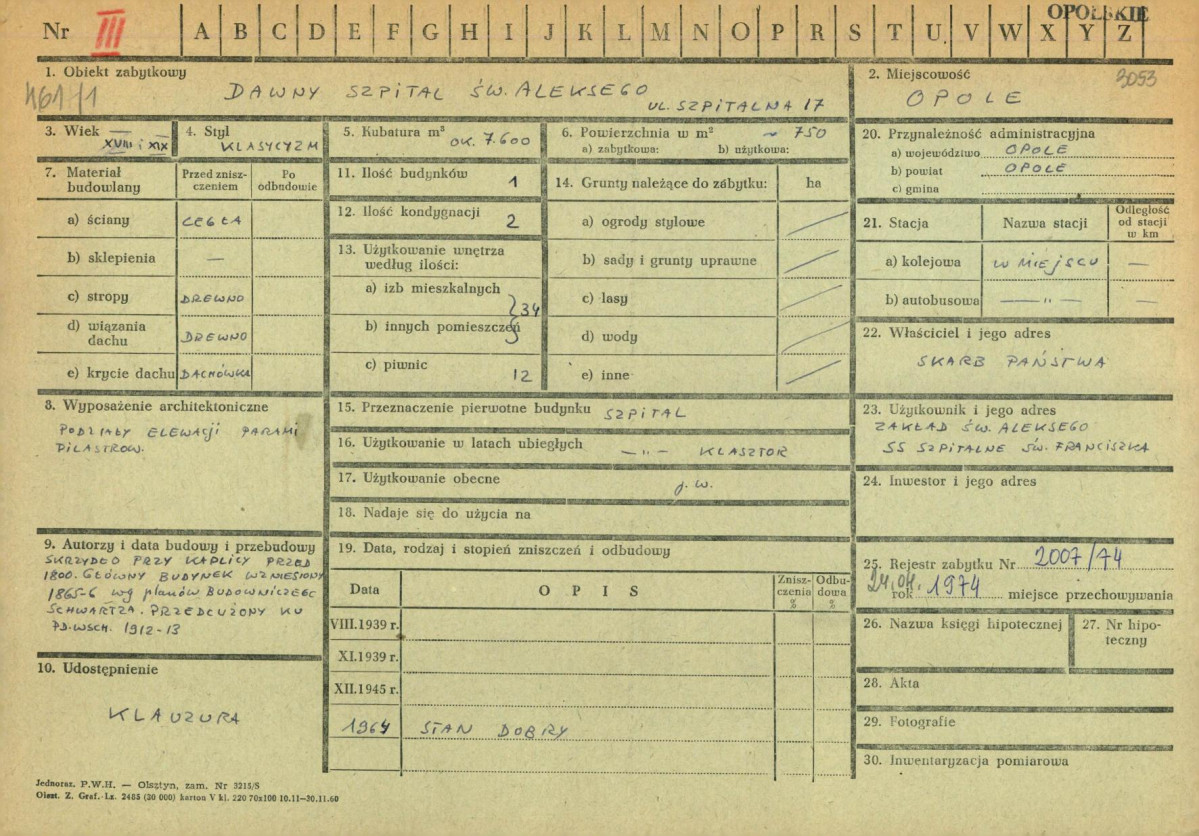 OPOLSKIE
Nr III A B C D E F G H I J K L M N O P R S T U V W X Y Z
1. Obiekt zabytkowy
461/1
DAWNY SZPITAL ŚW. ALEKSEGO
UL. SZPITALNA 17
2. Miejscowość
3053
OPOLE
3. Wiek
XVIII i XIX
4. Styl
KLASYCYZM
5. Kubatura m³
OK. 7.600
6. Powierzchnia w m² ~ 750
a) zabytkowa: b) użytkowa:
7. Materiał budowlany
Przed zniszczeniem
Po odbudowie
a) ściany CEGŁA
b) sklepienia —
c) stropy DREWNO
d) wiązania dachu DREWNO
e) krycie dachu DACHÓWKA
8. Wyposażenie architektoniczne
PODZIAŁY ELEWACJI PARAMI
PILASTROW.
9. Autorzy i data budowy i przebudowy
SKRZYDŁO PRZY KAPLICY PRZED
1800. GŁÓWNY BUDYNEK WZNIESIONY
1865-6 wg planów BUDOWNICZEGO
SCHWARTZA. PRZEDŁUŻONY KU
PD.WSCH. 1912-13
10. Udostępnienie
KLAUZURA
11. Ilość budynków 1
12. Ilość kondygnacji 2
13. Użytkowanie wnętrza
według ilości:
a) izb mieszkalnych
34
b) innych pomieszczeń
c) piwnic 12
14. Grunty należące do zabytku: ha
a) ogrody stylowe
b) sady i grunty uprawne
c) lasy
d) wody
e) inne
15. Przeznaczenie pierwotne budynku SZPITAL
16. Użytkowanie w latach ubiegłych — „ — KLASZTOR
17. Użytkowanie obecne j. w.
18. Nadaje się do użycia na
19. Data, rodzaj i stopień zniszczeń i odbudowy
Data
OPIS
Zniszczenia %
Odbudowa %
VIII.1939 r.
XI.1939 r.
XII.1945 r.
1964 STAN DOBRY
20. Przynależność administracyjna
a) województwo OPOLE
b) powiat OPOLE
c) gmina
21. Stacja
Nazwa stacji
Odległość
od stacji
w km
a) kolejowa W MIEJSCU —
b) autobusowa — „ — —
22. Właściciel i jego adres
SKARB PAŃSTWA
23. Użytkownik i jego adres
ZAKŁAD ŚW. ALEKSEGO
SS SZPITALNE ŚW. FRANCISZKA
24. Inwestor i jego adres
25. Rejestr zabytku Nr 2007/74
24.04. rok 1974 miejsce przechowywania
26. Nazwa księgi hipotecznej
27. Nr hipoteczny
28. Akta
29. Fotografie
30. Inwentaryzacja pomiarowa
Jednoraz. P.W.H. — Olsztyn, zam. Nr 3215/S
Olszt. Z. Graf.-Lz. 2485 (30 000) karton V kl. 220 70x100 10.11—30.11.60